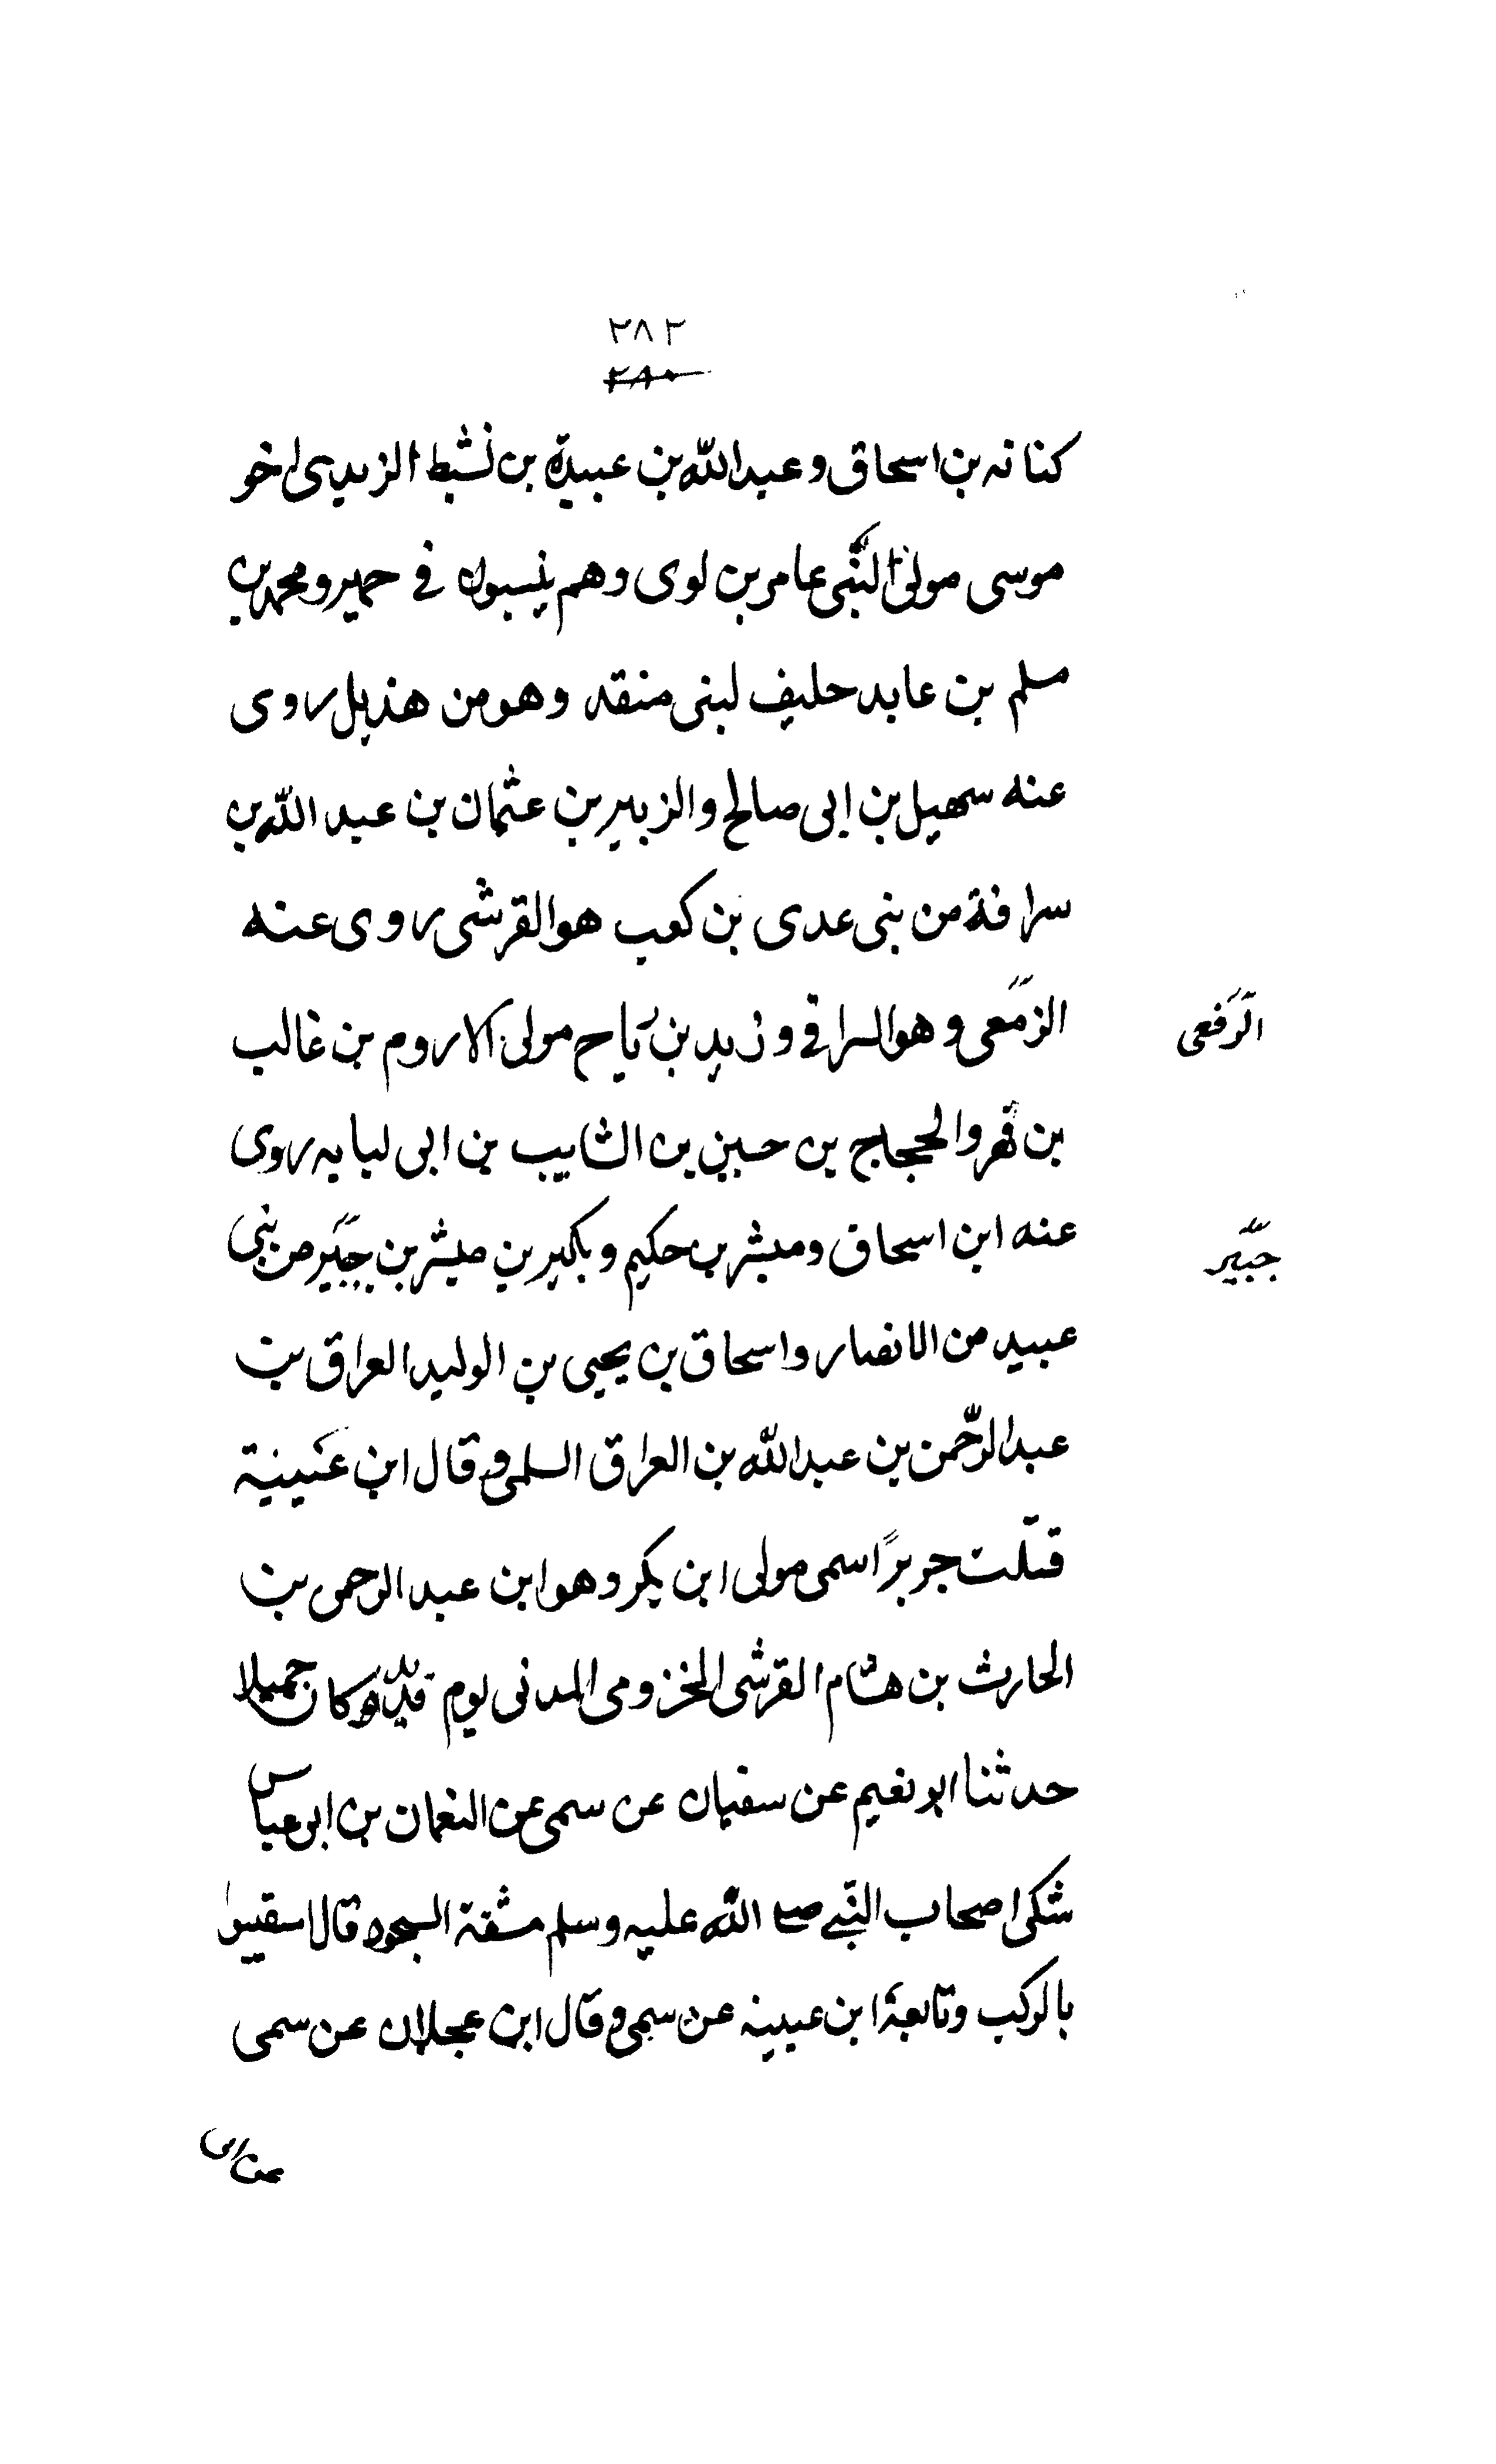 ٢٨٢
٢٨٠
كنانه بن اسحاق وعبد الله بن عبيدة بن نشبط الزبدى اخو
موسى مولى النبى عامر بن لوى وهم ينسبون في حمير ومحمد بن
مسلم بن عابد حليف لبنى منقد وهو من هذيل روى
عنه سهيل بن ابى صالح والزبير بن عثمان بن عبد الله بن
سراقة من بنى عدى بن كعب هو القرشى روى عنه
الزمّعى وهو السراقي وزيد بن رَباح مولى الاروم بن غالب
الرّفعى
بن فهر والحجاج بن حسين بن الشايب بن ابى لبابه روى
عنه ابن اسحاق ومبشر بن حكيم وبكير بن مبشر بن جبَّير من بنى
جبَّير
عبيد من الانصار واسحاق بن يحيى بن الوليد العراق بن
عبد الرّحمن بن عبد الله بن العراق السلمى وقال ابن عَيينية
قتلت جريرًا سمى مولى ابن بكر وهو ابن عبد الرحمن بن
الحارث بن هشام القرشى المخزومى المدنى يوم قديد وكان جميلا
حدثنا ابو نعيم عن سفيان عن سمى عن النعمان بن ابى عياس
شكى اصحاب النّبي صلى الله عليه وسلم مشقة السجود قال استقيبوا
بالركب وتابعة ابن عيينه عن سمى وقال ابن عجلان عن سمى